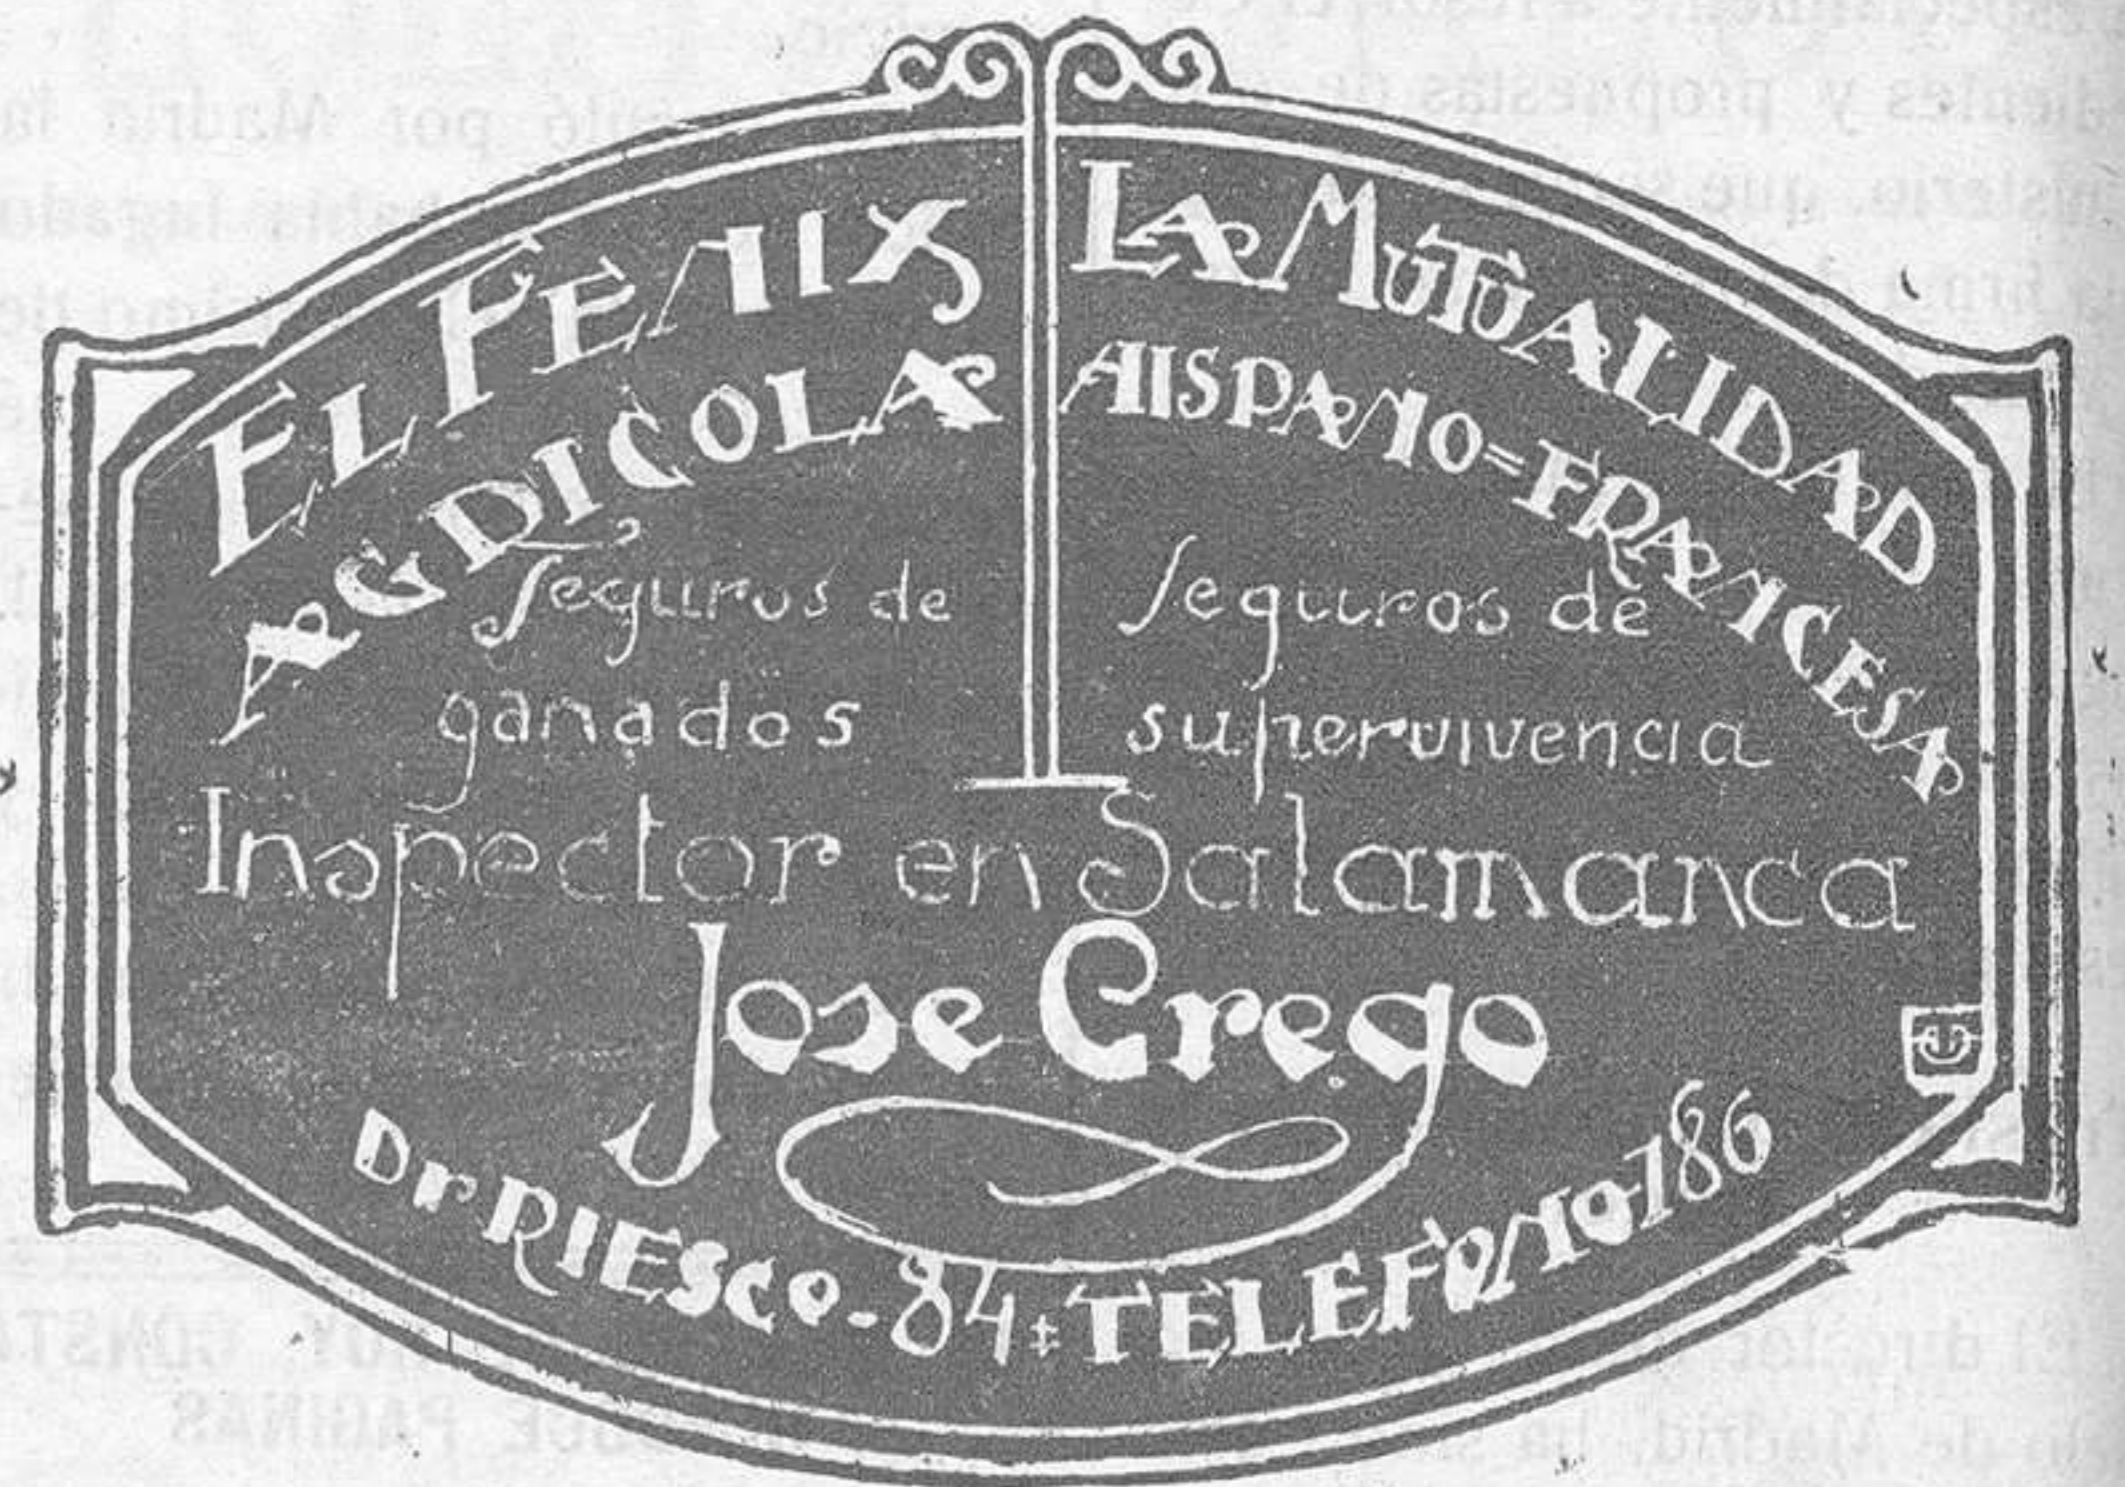 EL FENIX
AGRICOLA
Seguros de
ganados
LA MUTUALIDAD
HISPANO=FRANCESA
Seguros de
supervivencia
Inspector en Salamanca
Jose Crego
Dr RIESCO-84=TELEFONO-186